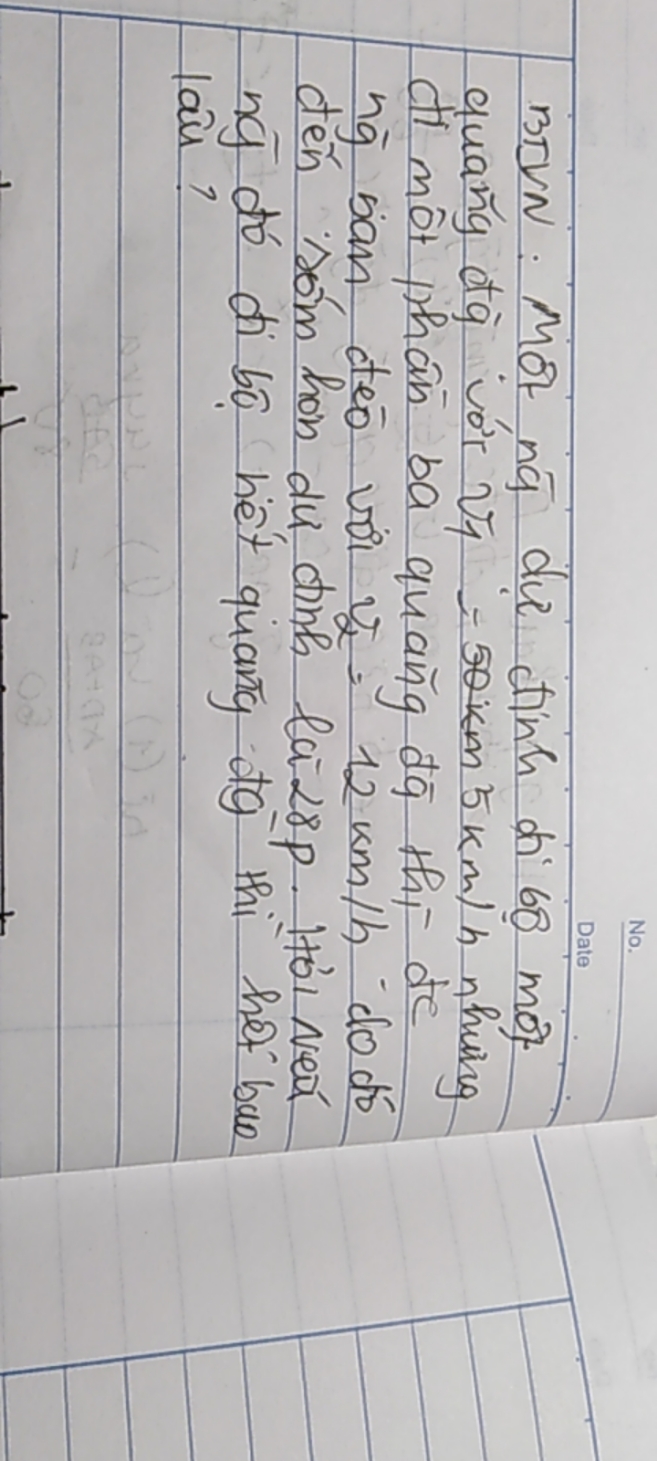 No.
Date
BTVN : Một ng̃ dự định đi bộ một
quãng đg̀ với V1 = 50km 5km/h nhưng
đi một phần ba quãng đg̀ thì đc
ng̀ bạn đèo với V2 = 12km/h do đó
đến sớm hơn dự định là 28p. Hỏi nếu
ng̃ đó đi bộ hết quãng đg̀ thì hết bao
lâu ?